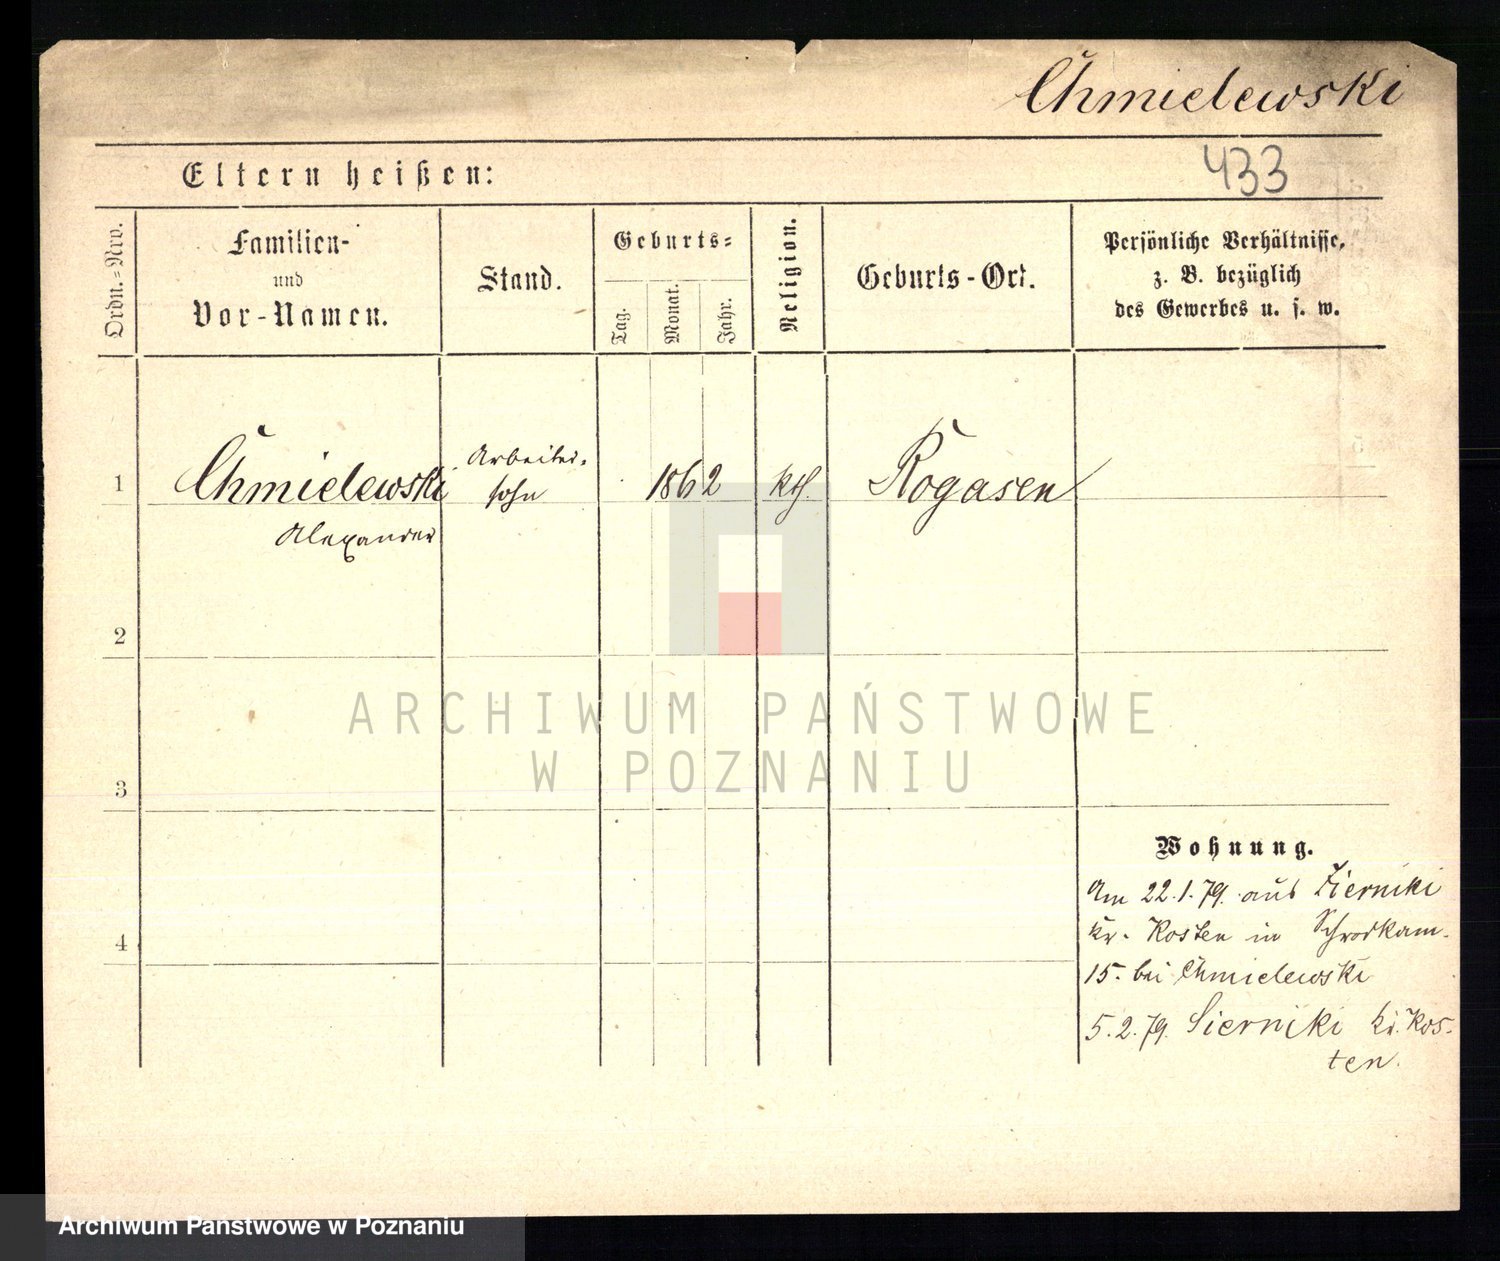 Chmielewski
433
Eltern heißen:
Ordn.=Nro.
Familien-
und
Vor-Namen.
Stand.
Geburts=
Tag.
Monat.
Jahr.
Religion.
Geburts-Ort.
Persönliche Verhältnisse,
z. B. bezüglich
des Gewerbes u. s. w.
1
Chmielewski
Alexander
Arbeiter-
sohn
1862
kth.
Rogasen
2
3
4
Wohnung.
Am 22.1.79. aus Zierniki
Kr. Kosten in Schrodkam.
15. bei Chmielewski
5.2.79. Sierniki Kr. Kos-
ten.
ARCHIWUM PAŃSTWOWE
W POZNANIU
Archiwum Państwowe w Poznaniu